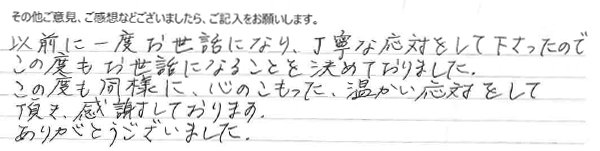 その他ご意見、ご感想などございましたら、ご記入をお願いします。
以前に一度お世話になり、丁寧な応対をして下さったので
この度もお世話になることを決めておりました。
この度も同様に、心のこもった、温かい応対をして
頂き、感謝しております。
ありがとうございました。